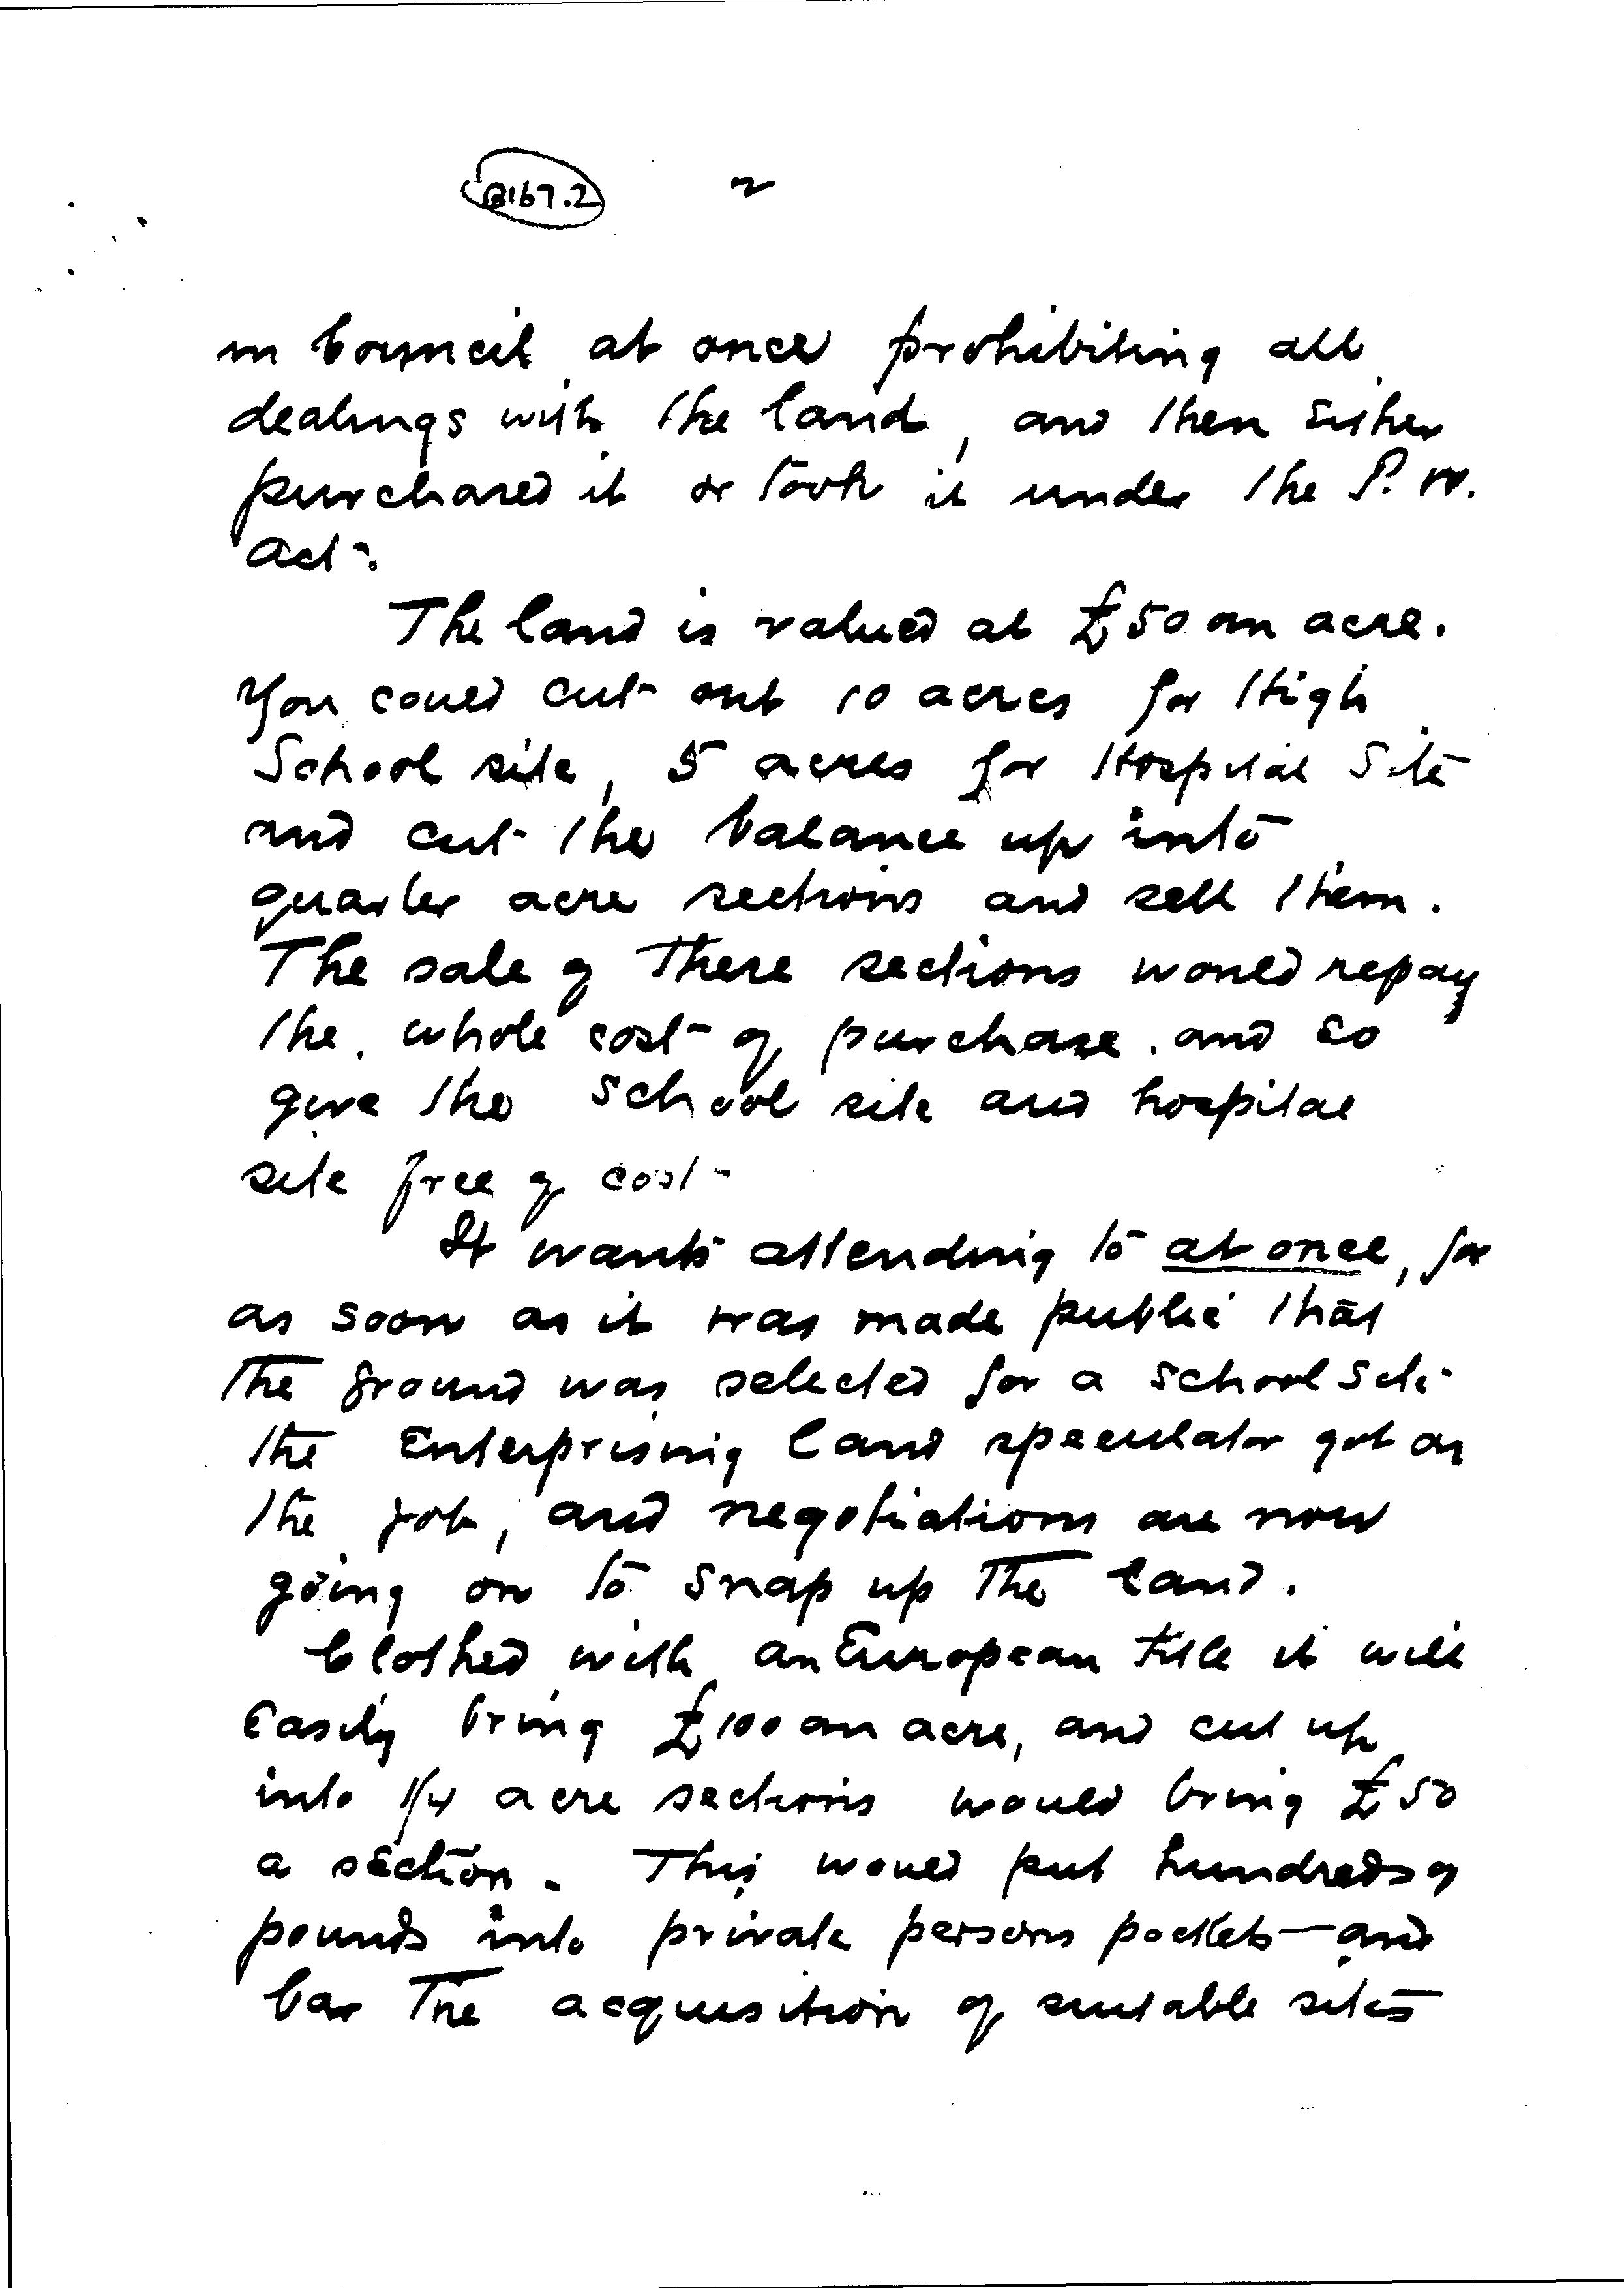 B167.2 2
in Council at once prohibiting all
dealings with the land, and then either
purchased it or took it under the P. W.
Act.
The land is valued at £50 an acre.
You could cut out 10 acres for High
School site, 5 acres for Hospital Site
and cut the balance up into
quarter acre sections and sell them.
The sale of these sections would repay
the whole cost of purchase. and so
give the School site and hospital
site free of cost
It wants attending to at once, for
as soon as it was made public that
the ground was selected for a school site
the Enterprising land speculator got on
the job, and negotiations are now
going on to snap up the land.
Clothed with an European title it will
easily bring £100 an acre, and cut up
into 1/4 acre sections would bring £50
a section. This would put hundreds of
pounds into private persons pockets—and
bar the acquisition of suitable sites